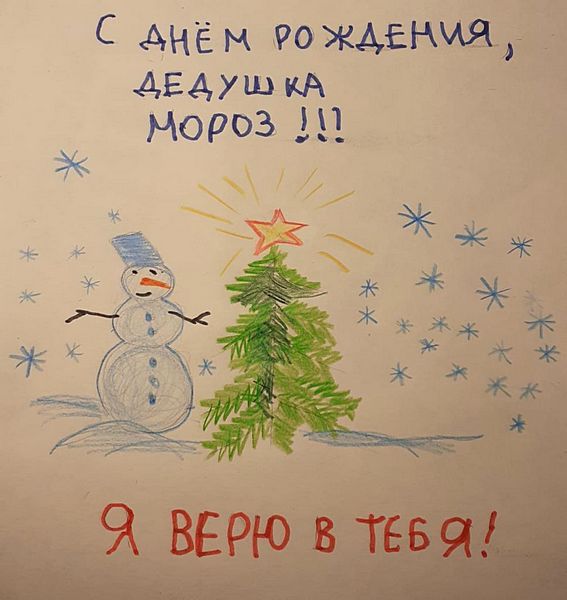 С ДНЁМ РОЖДЕНИЯ,
ДЕДУШКА
МОРОЗ !!!
Я ВЕРЮ В ТЕБЯ!